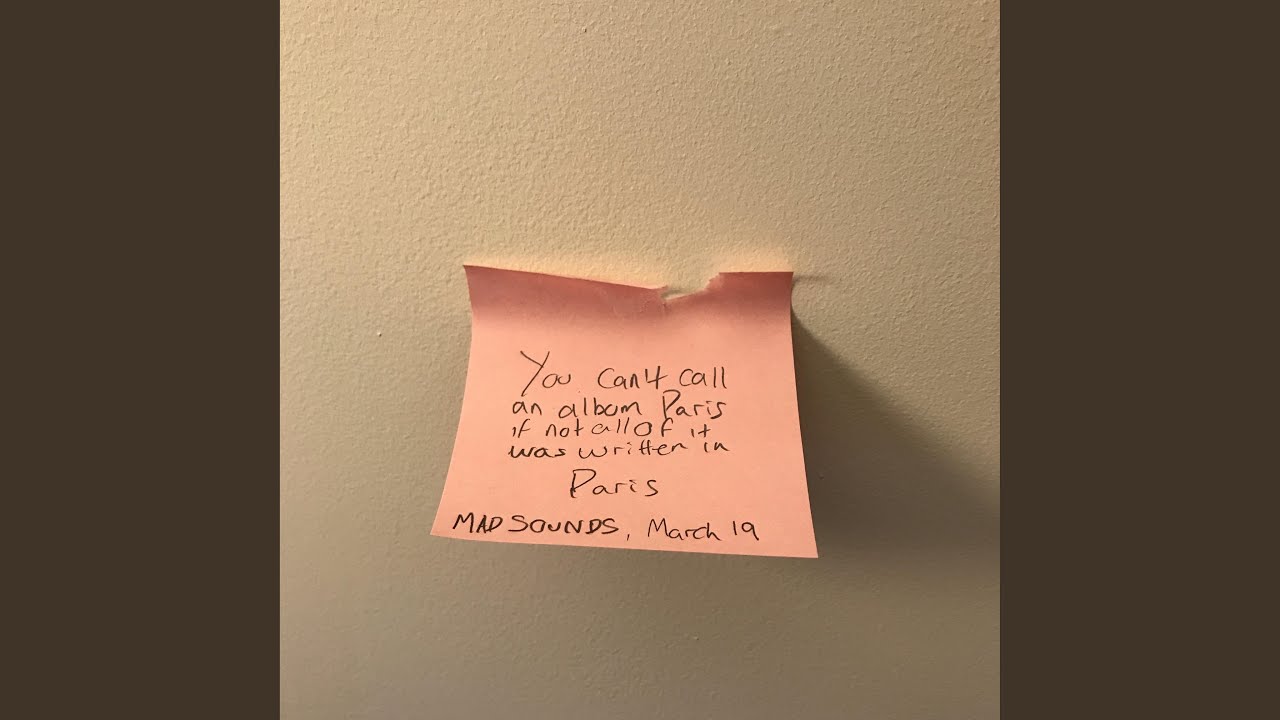 You can't call
an album Paris
if not all of it
was written in
Paris
MAD SOUNDS, March 19